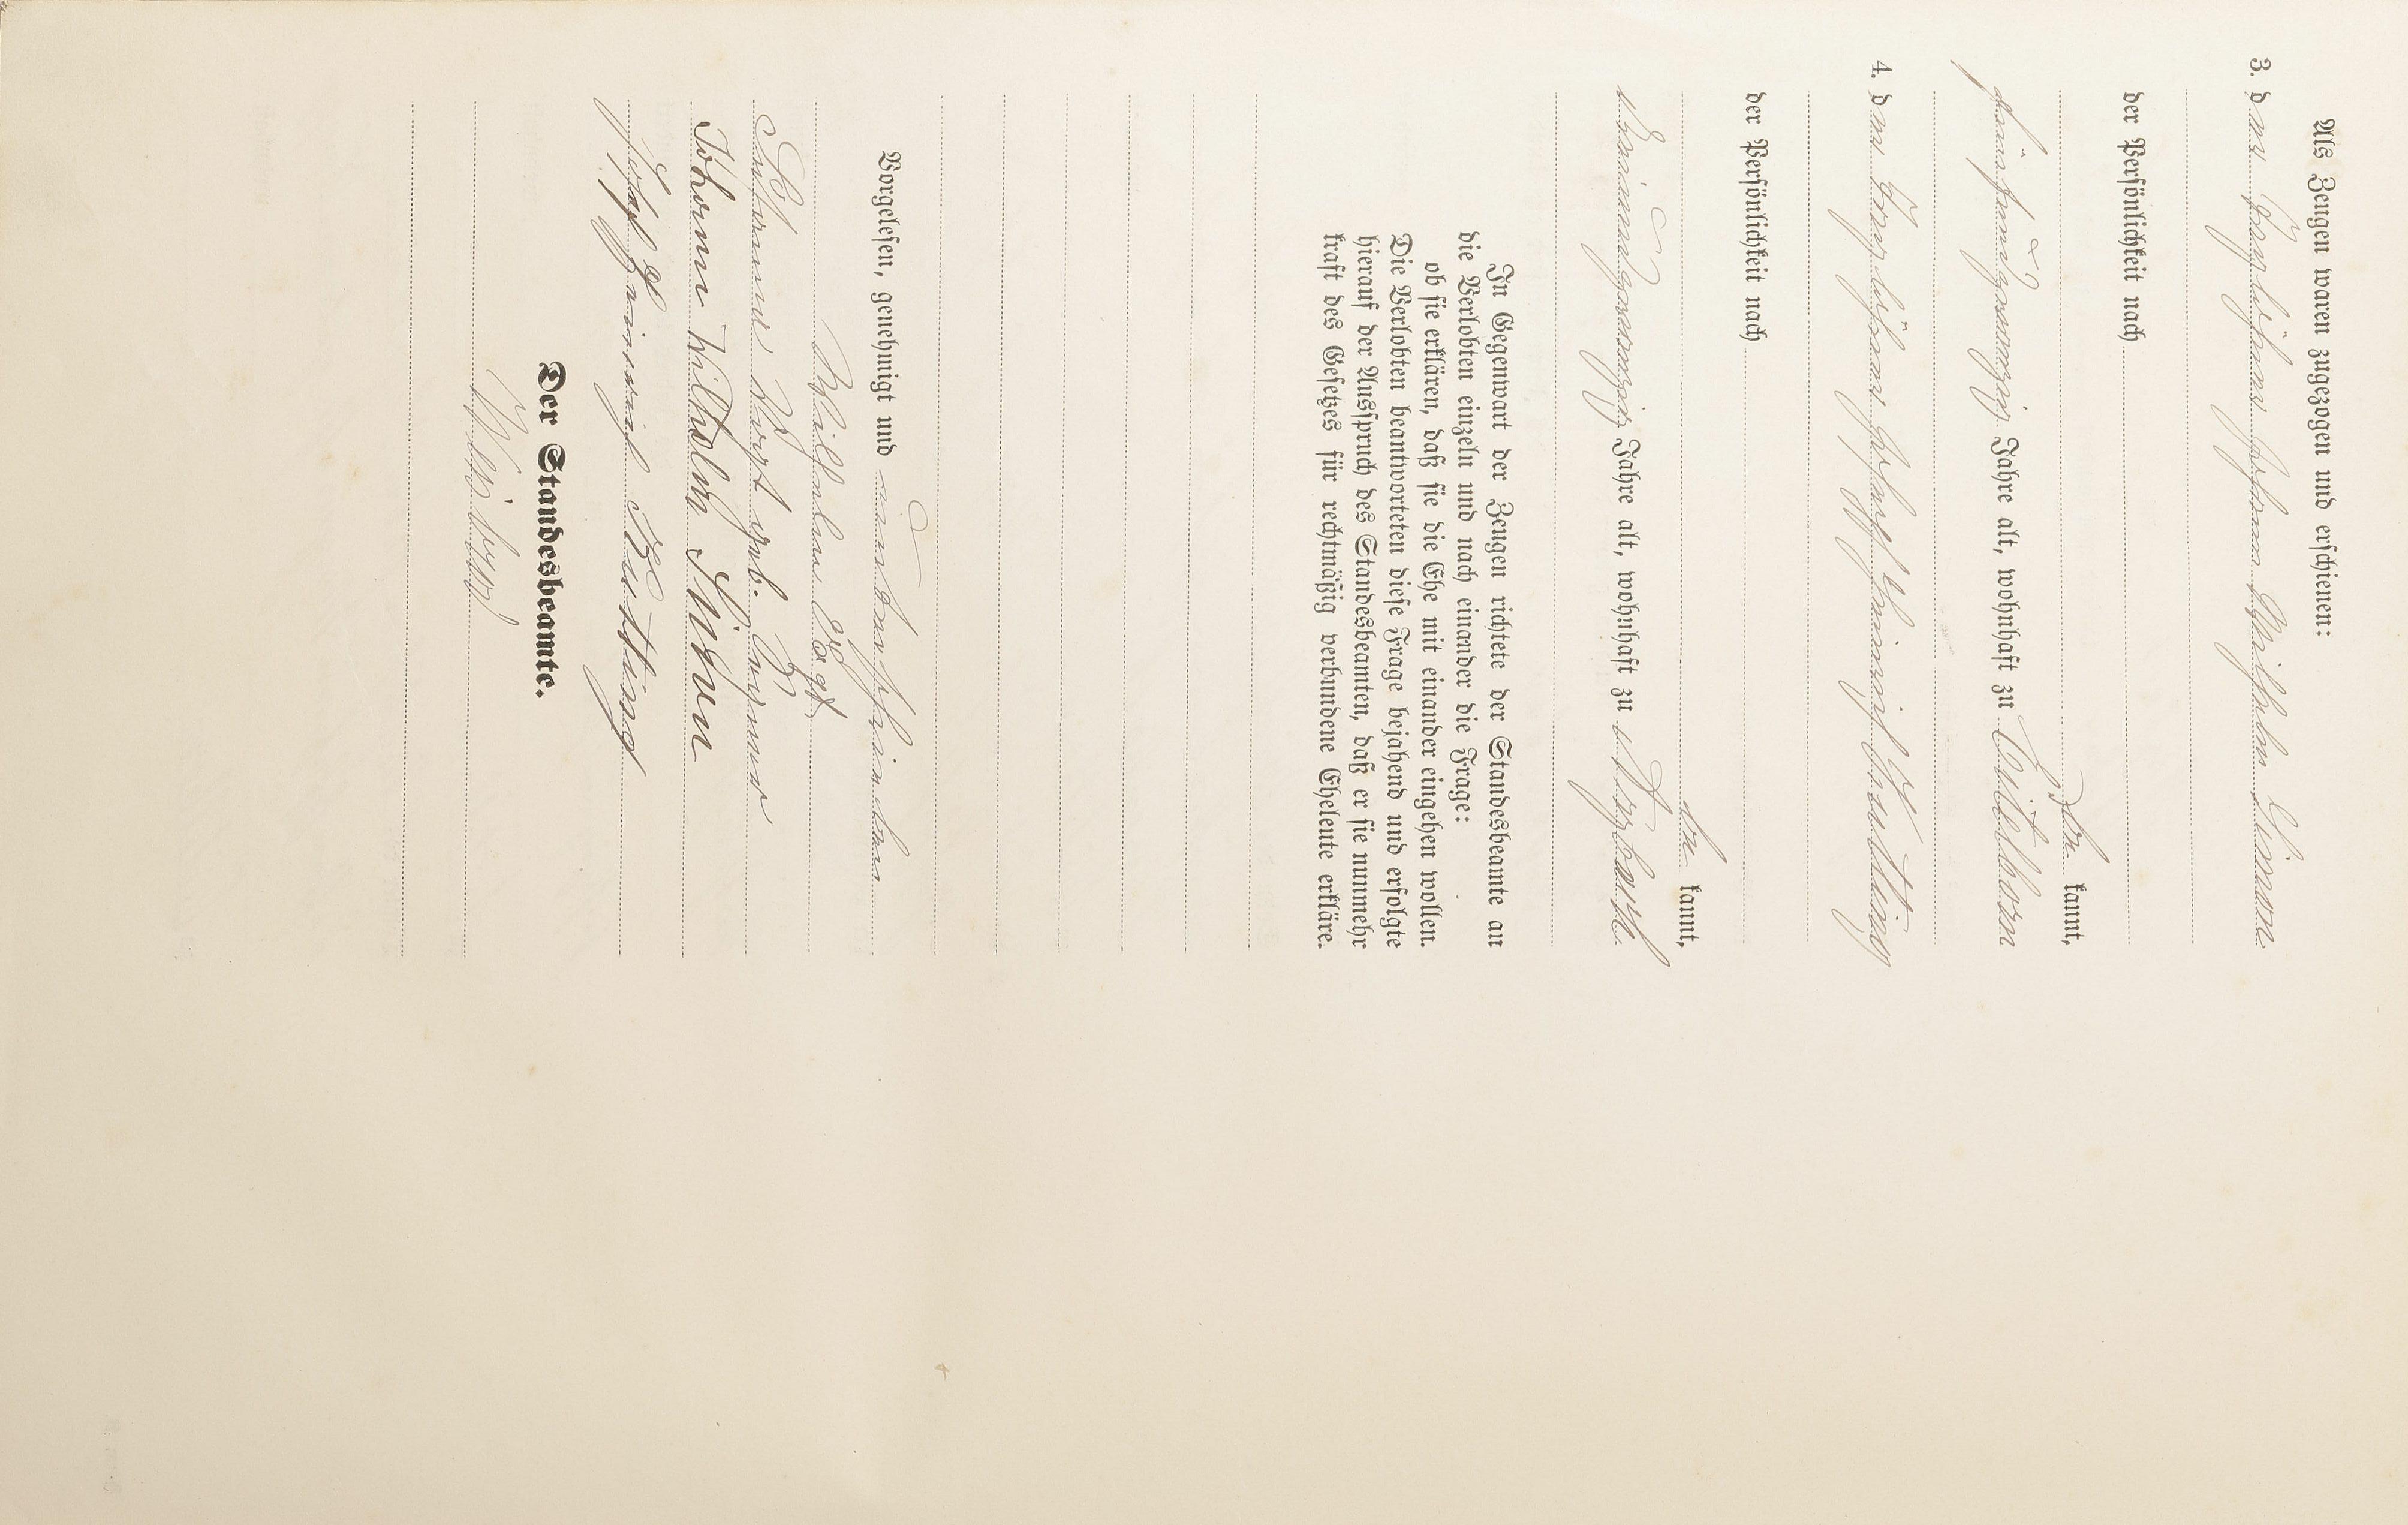 Als Zeugen waren zugezogen und erschienen:
3. der Tagelöhner Johann Wilhelm Simon
der Persönlichkeit nach
kannt,
fünfundzwanzig Jahre alt, wohnhaft zu
4. der Tagelöhner Joseph Heinrich
der Persönlichkeit nach
kannt,
neunundzwanzig Jahre alt, wohnhaft zu
In Gegenwart der Zeugen richtete der Standesbeamte an
die Verlobten einzeln und nach einander die Frage:
ob sie erklären, daß sie die Ehe mit einander eingehen wollen.
Die Verlobten beantworteten diese Frage bejahend und erfolgte
hierauf der Ausspruch des Standesbeamten, daß er sie nunmehr
kraft des Gesetzes für rechtmäßig verbundene Eheleute erkläre.
Vorgelesen, genehmigt und unterschrieben
Wilhelm Vogt
Vogt geb.
Johann Wilhelm Simon
Joseph Heinrich
Der Standesbeamte.